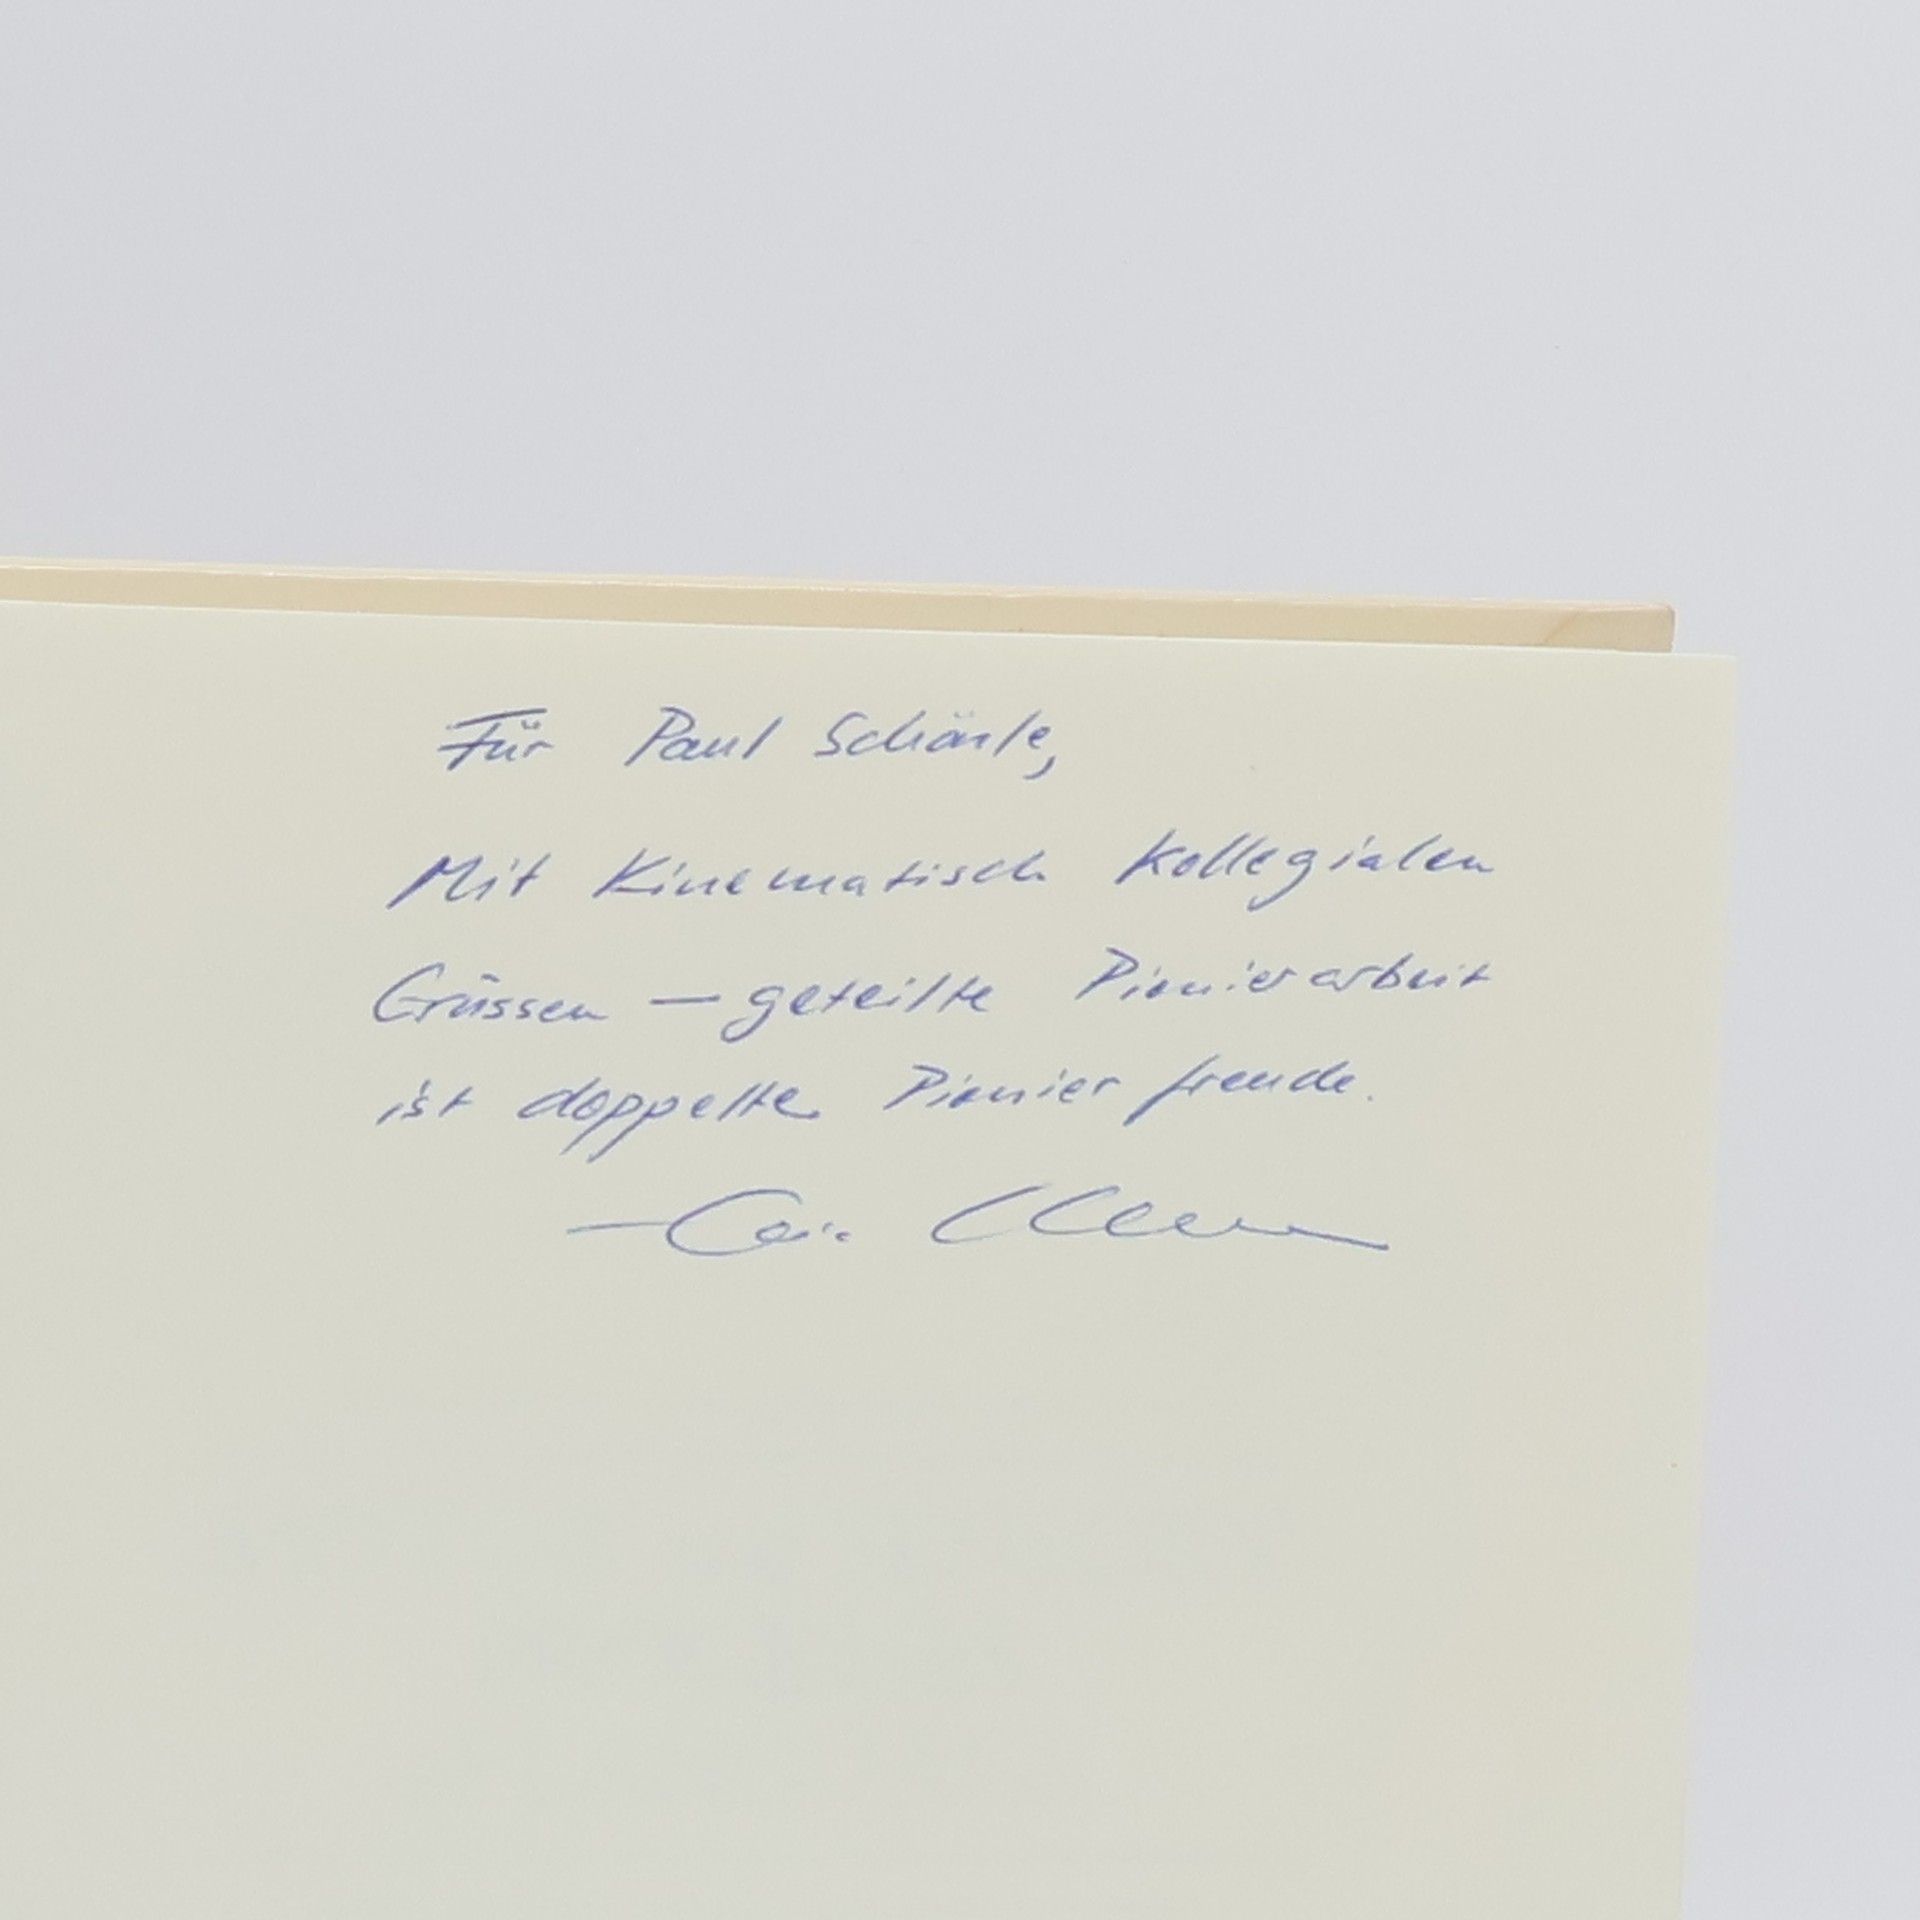 Für Paul Schärle,
Mit Kinematisch kollegialen
Grüssen — geteilte Pionierarbeit
ist doppelte Pionierfreude.